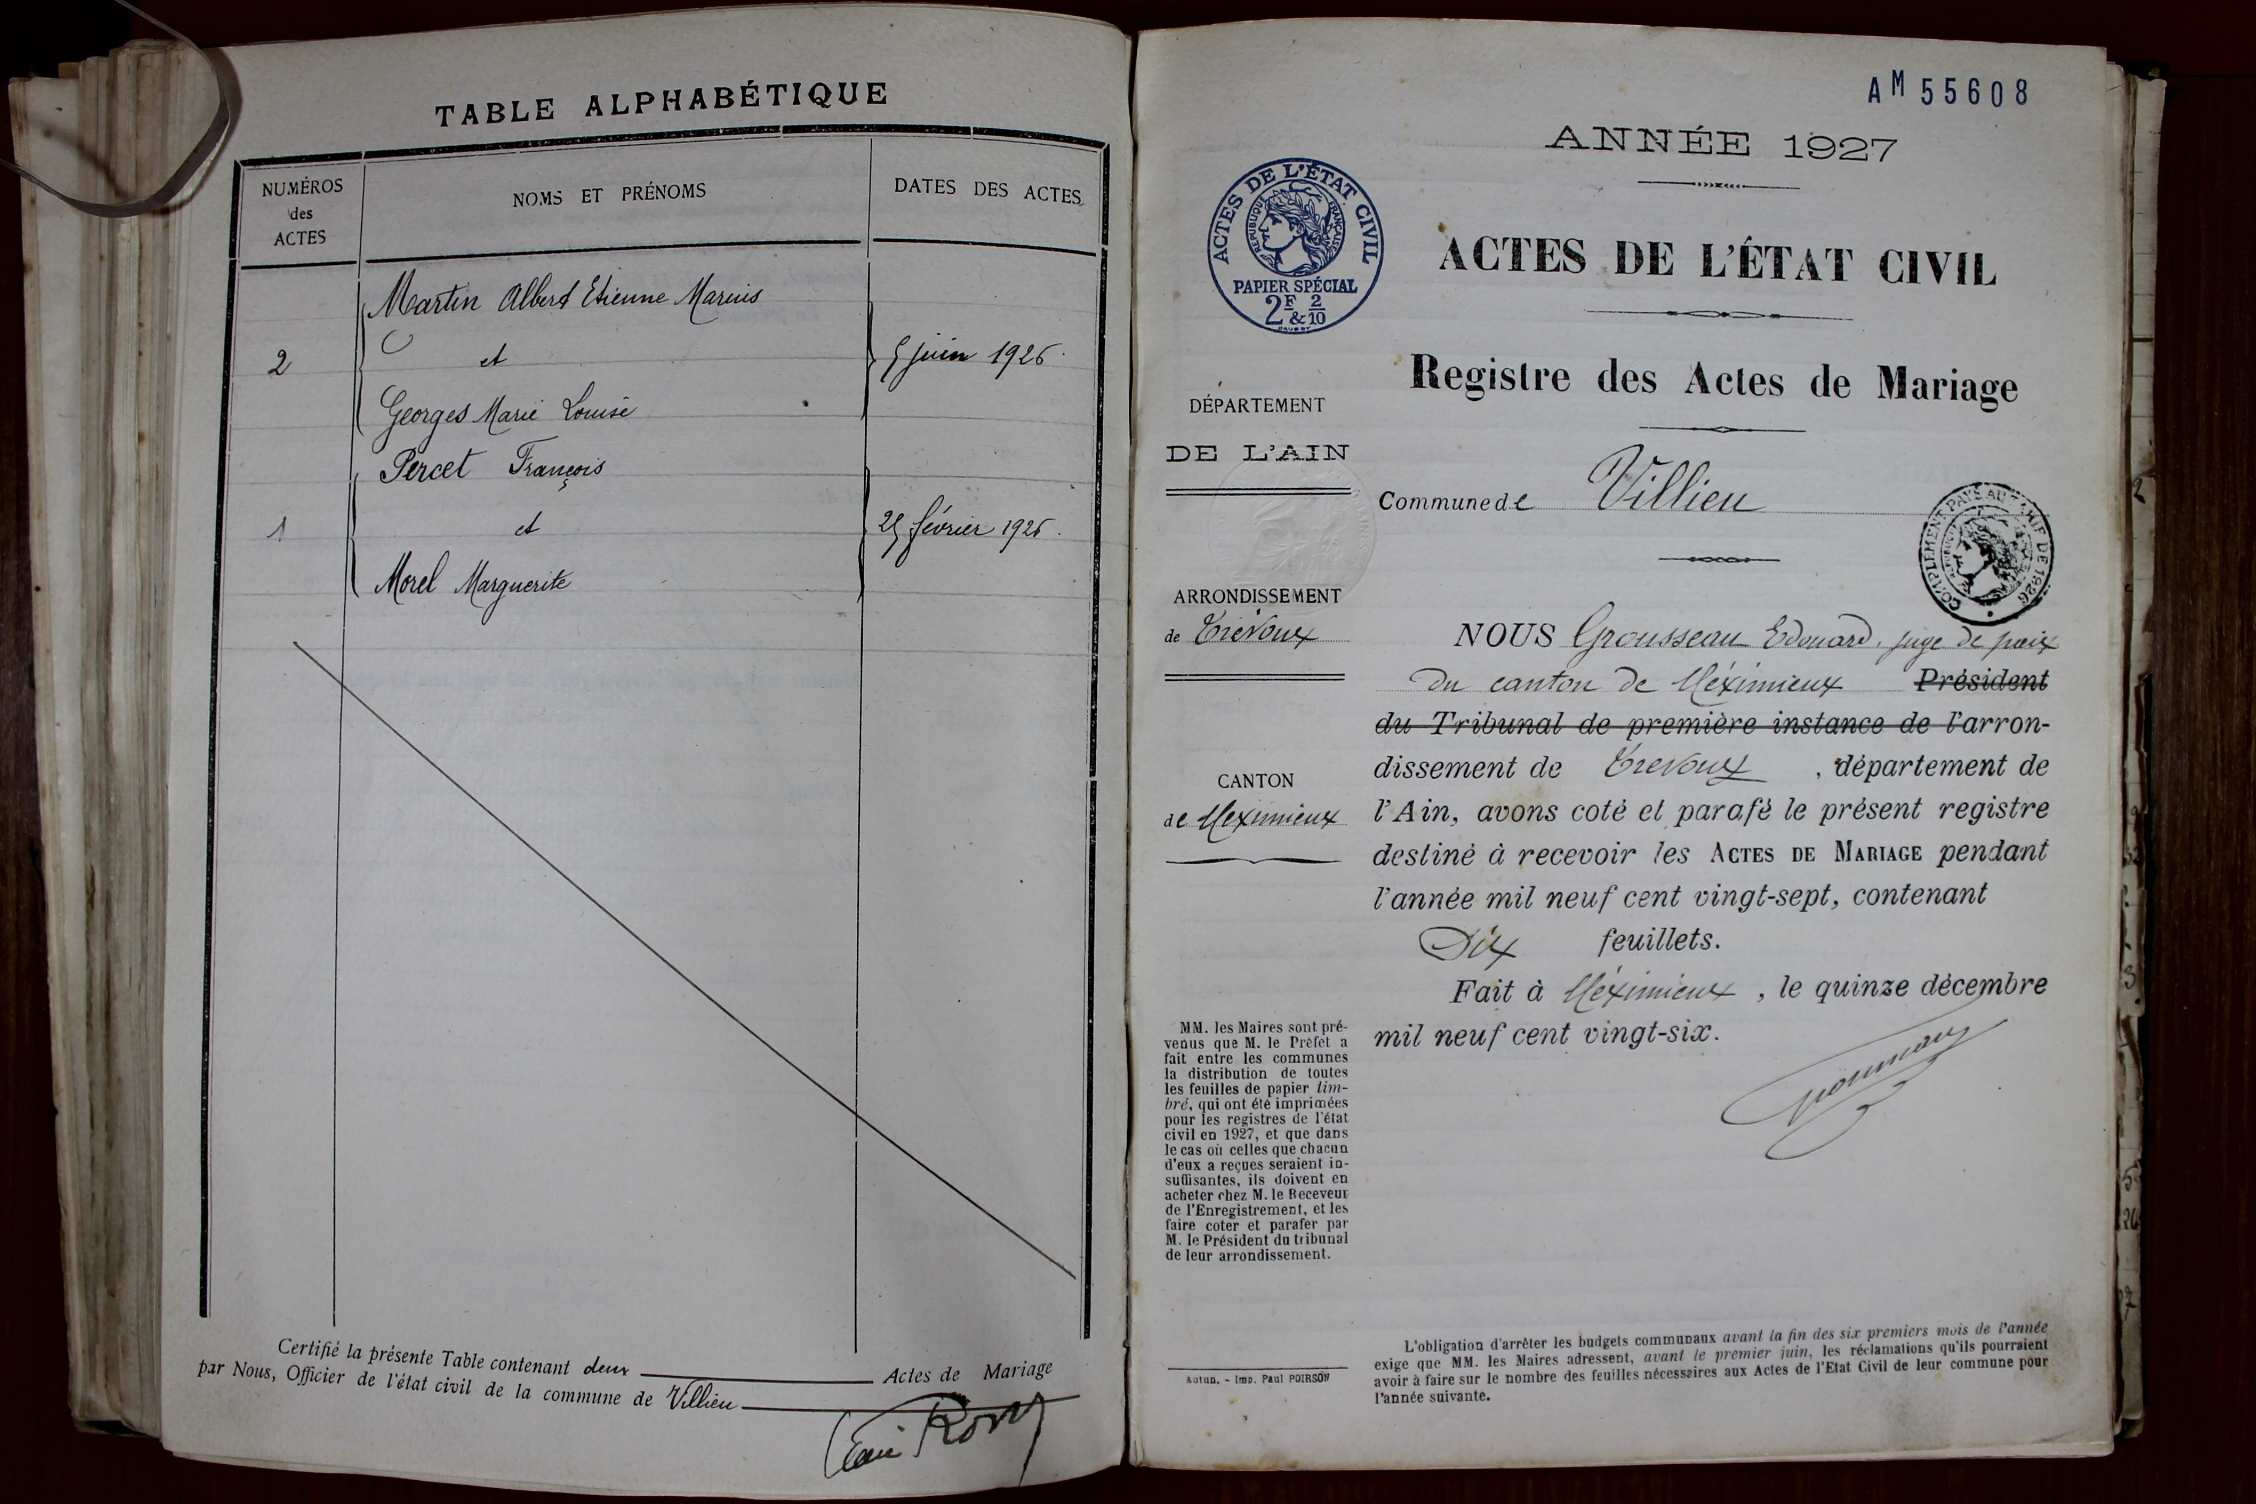 TABLE ALPHABÉTIQUE
NUMÉROS
des
ACTES
NOMS ET PRÉNOMS
DATES DES ACTES
Martin Albert Etienne Marius
2
et
5 juin 1926.
Georges Marie Louise
Percet François
1
et
25 février 1926.
Morel Marguerite
Certifié la présente Table contenant deux Actes de Mariage
par Nous, Officier de l'état civil de la commune de Villieu
AM 55608
ANNÉE 1927
ACTES DE L'ÉTAT CIVIL
RÉPUBLIQUE FRANÇAISE
PAPIER SPÉCIAL
2F & 2/10
ACTES DE L'ÉTAT CIVIL
Registre des Actes de Mariage
DÉPARTEMENT
DE L'AIN
Commune de Villieu
COMPLÉMENT PAYÉ AU TARIF DE 1926
ARRONDISSEMENT
de Trévoux
CANTON
de Meximieux
NOUS Grousseau Edouard, juge de paix
du canton de Méximieux Président
du Tribunal de première instance de l'arron-
dissement de Trevoux, département de
l'Ain, avons coté et parafé le présent registre
destiné à recevoir les ACTES DE MARIAGE pendant
l'année mil neuf cent vingt-sept, contenant
Dix feuillets.
Fait à Méximieux, le quinze décembre
mil neuf cent vingt-six.
MM. les Maires sont pré-
venus que M. le Préfet a
fait entre les communes
la distribution de toutes
les feuilles de papier tim-
bré, qui ont été imprimées
pour les registres de l'état
civil en 1927, et que dans
le cas où celles que chacun
d'eux a reçues seraient in-
suffisantes, ils doivent en
acheter chez M. le Receveur
de l'Enregistrement, et les
faire coter et parafer par
M. le Président du tribunal
de leur arrondissement.
Autun. - Imp. Paul POIRSON
L'obligation d'arrêter les budgets communaux avant la fin des six premiers mois de l'année
exige que MM. les Maires adressent, avant le premier juin, les réclamations qu'ils pourraient
avoir à faire sur le nombre des feuilles nécessaires aux Actes de l'Etat Civil de leur commune pour
l'année suivante.